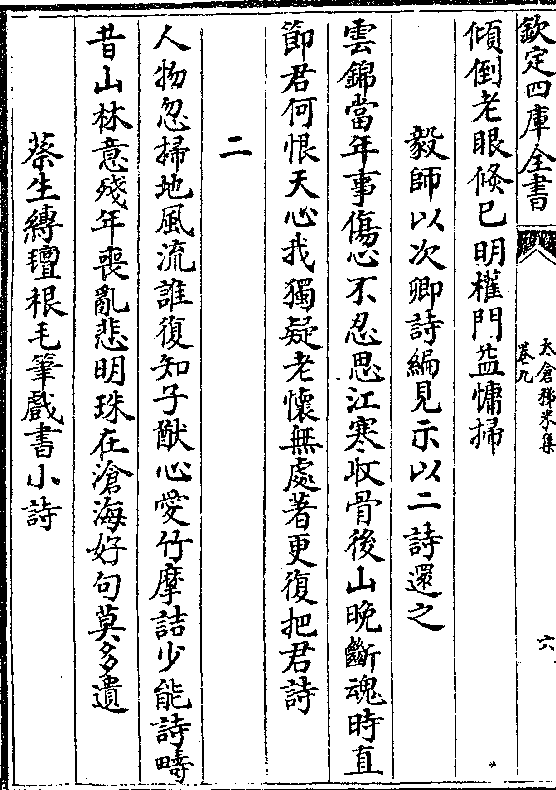 欽定四庫全書
太倉稊米集
卷九
六
傾倒老眼倏已明權門益慵掃
毅師以次卿詩編見示以二詩還之
雲錦當年事傷心不忍思江寒收骨後山晚斷魂時直
節君何恨天心我獨疑老懷無處著更復把君詩
二
人物忽掃地風流誰復知子猷心愛竹摩詰少能詩疇
昔山林意殘年喪亂悲明珠在滄海好句莫多遺
蔡生縛䝔根毛筆戲書小詩